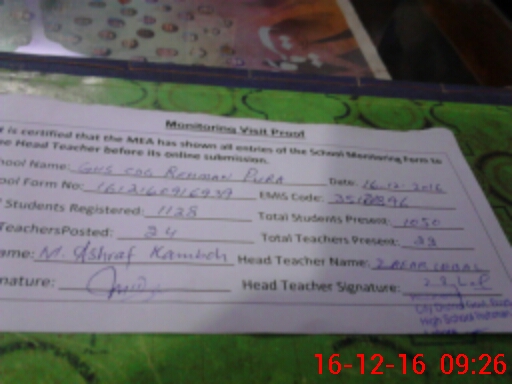 Monitoring Visit Proof
is certified that the MEA has shown all entries of the School Monitoring Form to
Head Teacher before its online submission.
ool Name: GHS CDG Rehman PURA Date: 16-12-2016
ool Form No: EMIS Code:
Students Registered: 1128 Total Students Present: 1050
TeachersPosted: 24 Total Teachers Present: 23
ame: M. Ashraf Kamboh Head Teacher Name: ZAFAR IQBAL
nature: Head Teacher Signature:
City District Govt.
High School
16-12-16 09:26